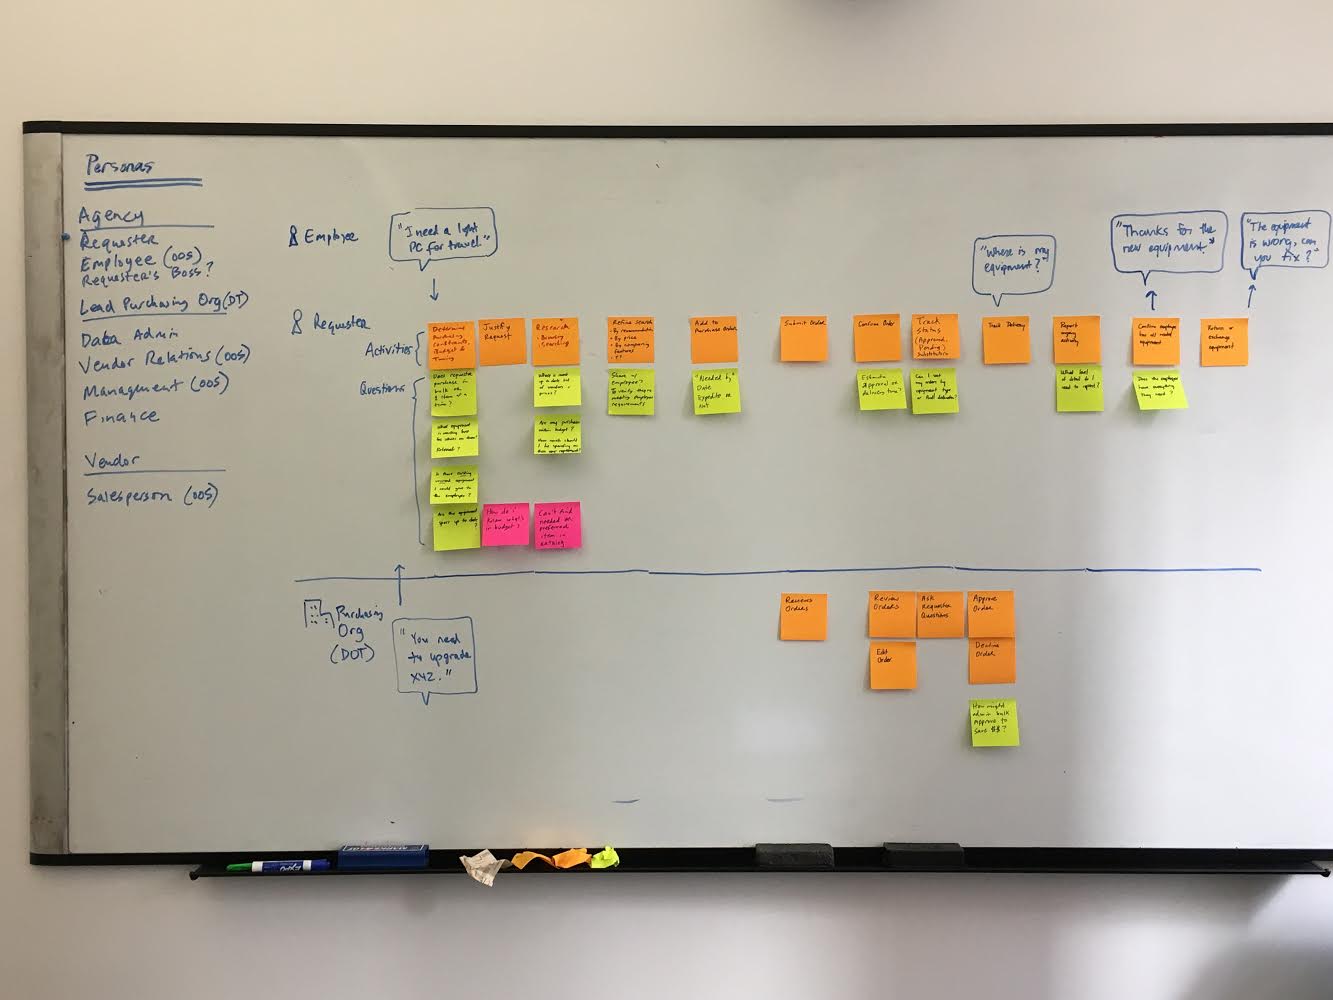 Personas
Agency
Requester
Employee (OOS)
Requester's Boss?
Lead Purchasing Org (DT)
Data Admin
Vendor Relations (OOS)
Management (OOS)
Finance
Vendor
Salesperson (OOS)
Employee
"I need a light
PC for travel."
"Where is my
equipment?"
"Thanks for the
new equipment."
"The equipment
is wrong, can
you fix?"
Requester
Activities
Determine
Purchasing
Constraints,
Budget &
Timing
Justify
Request
Research
Browsing
Searching
Refine Search
- By recommendation
- By price
- By comparing
features
Add to
Purchase Order
Submit Order
Confirm Order
Track
Status
(Approved,
Pending)
Substitution
Track Delivery
Report
agency
activity
Confirm employee
has all needed
equipment
Return or
exchange
equipment
Questions
Does requester
purchase in
bulk or
1 item at a
time?
What equipment
Is there existing
equipment
I could give to
the employee?
Are the equipment
specs up to date
?
How do I
know what's
in budget?
up to date list
of vendors &
prices?
Are my purchases
within budget?
How much should
I be spending on
Can't find
needed or
preferred
item in
catalog
Share w/
employee?
To verify they're
meeting employee
requirements
"Needed by"
Date
Expedite or
Not
Estimated
Approval or
delivery time?
Can I sort
my orders by
equipment type
What level
of detail do I
need to report?
Does the employee
have everything
they need?
Purchasing
Org
(DOT)
"You need
to upgrade
XYZ."
Receives
Orders
Review
Orders
Ask
Requester
Questions
Approve
Order
Edit
Order
Decline
Order
How might
admin bulk
Approve to
save $$?